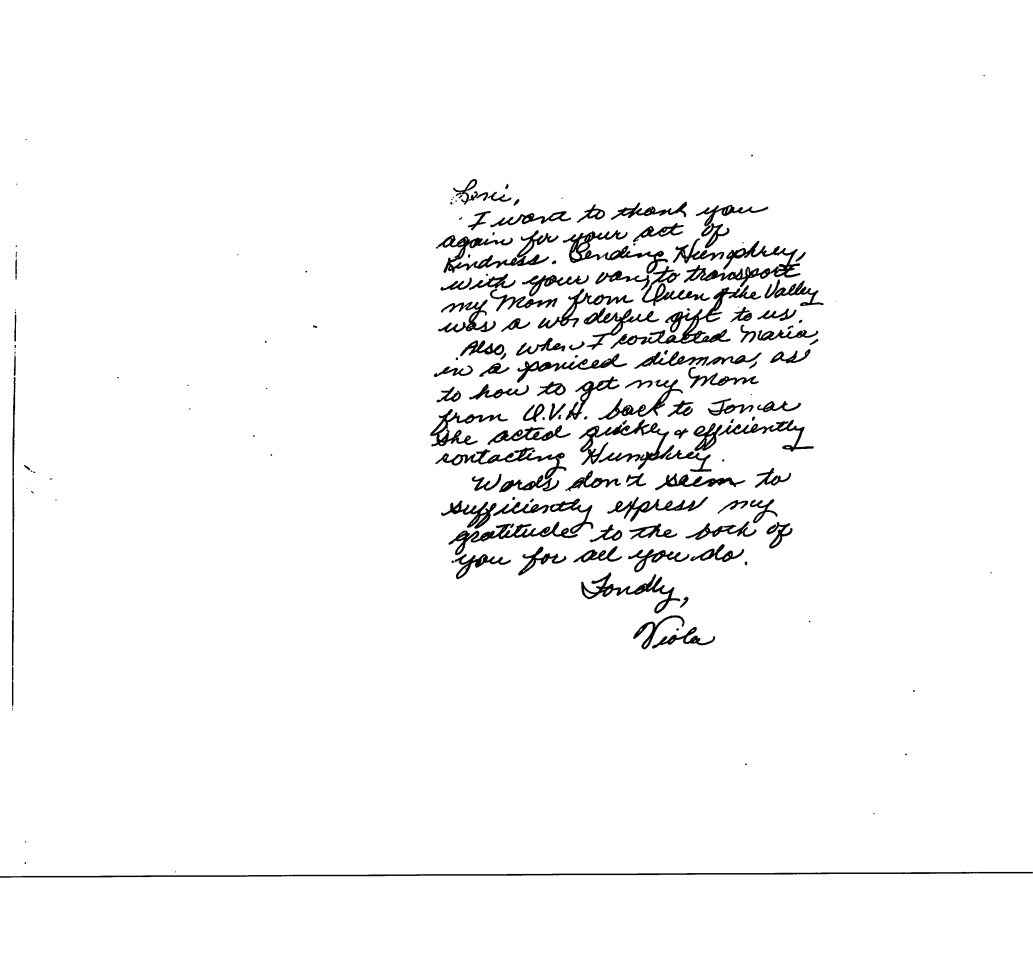 Loni,
I want to thank you
again for your act of
Kindness. Sending Humphrey,
with your van, to transport
my Mom from Queen of the Valley
was a wonderful gift to us.
Also, when I contacted Maria,
in a paniced dilemma, as
to how to get my Mom
from Q.V.H. back to Jomar
She acted quickey & efficiently
contacting Humphrey.
Words don't seem to
sufficiently express my
gratitude to the both of
you for all you do.
Fondly,
Viola